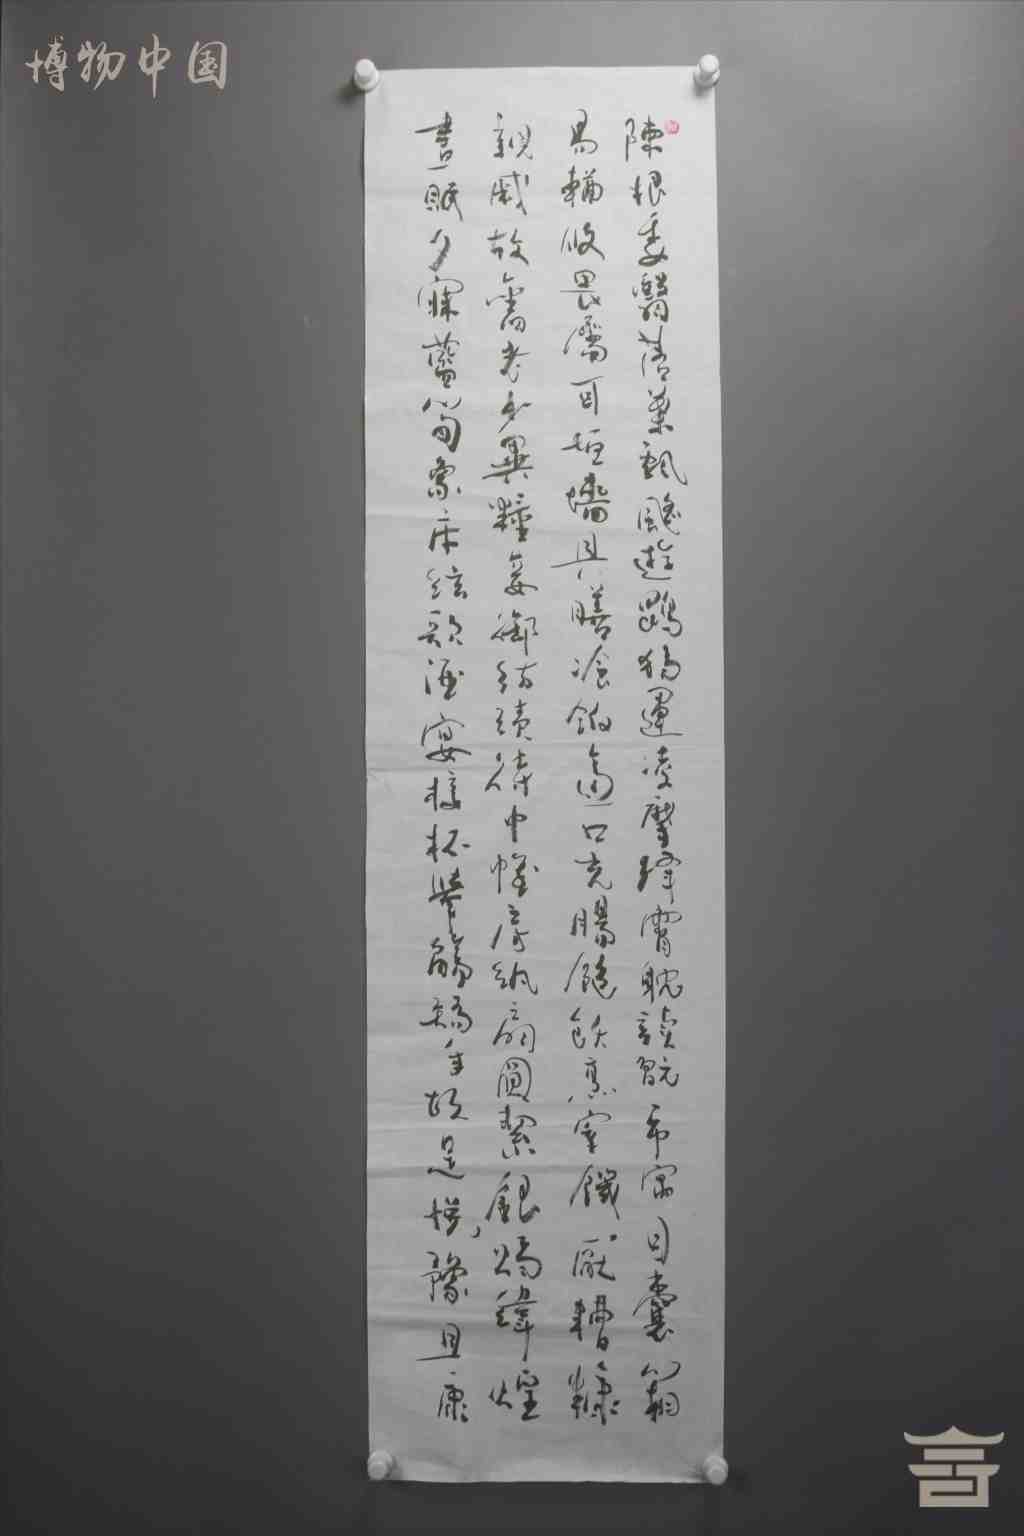 博物中国
陳根委翳落葉飄颻遊鵾獨運凌摩絳霄耽讀翫市寓目囊箱
易輶攸畏屬耳垣牆具膳飡飯適口充腸飽飫烹宰饑厭糟糠
親戚故舊老少異糧妾御紡績侍巾帷房紈扇圓絜銀燭煒煌
晝眠夕寐藍筍象床絃歌酒宴接杯舉觴矯手頓足悅豫且康